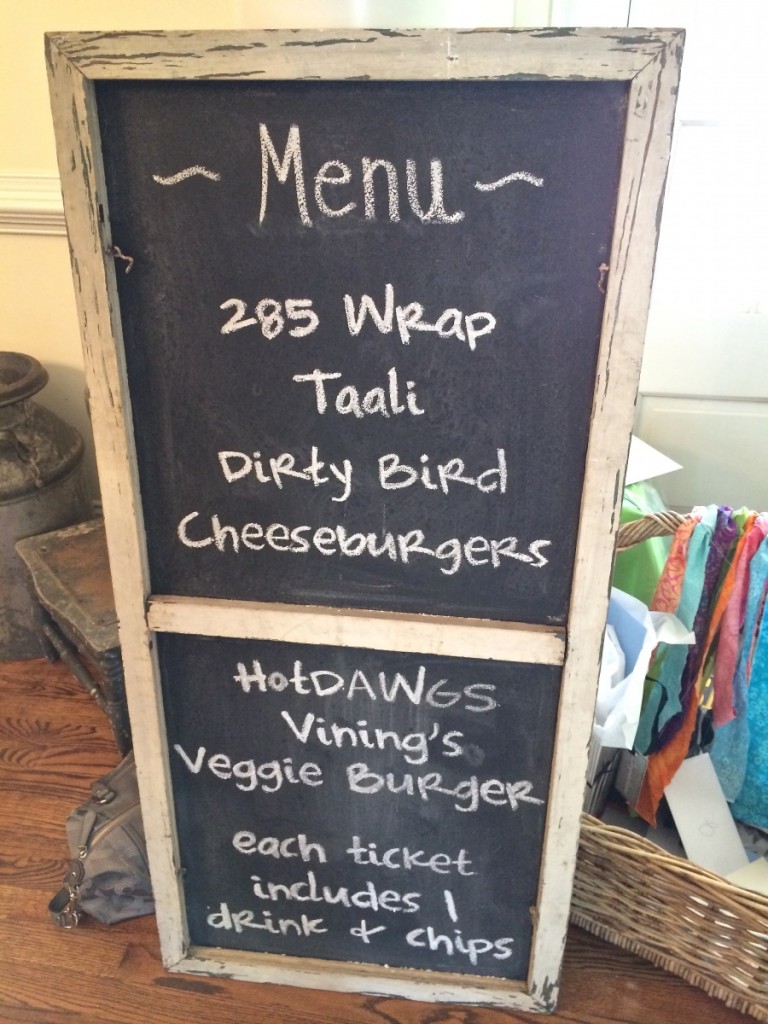 ~ Menu ~
285 Wrap
Taali
Dirty Bird
Cheeseburgers
HotDAWGS
Vining's
Veggie Burger
each ticket
includes 1
drink & chips